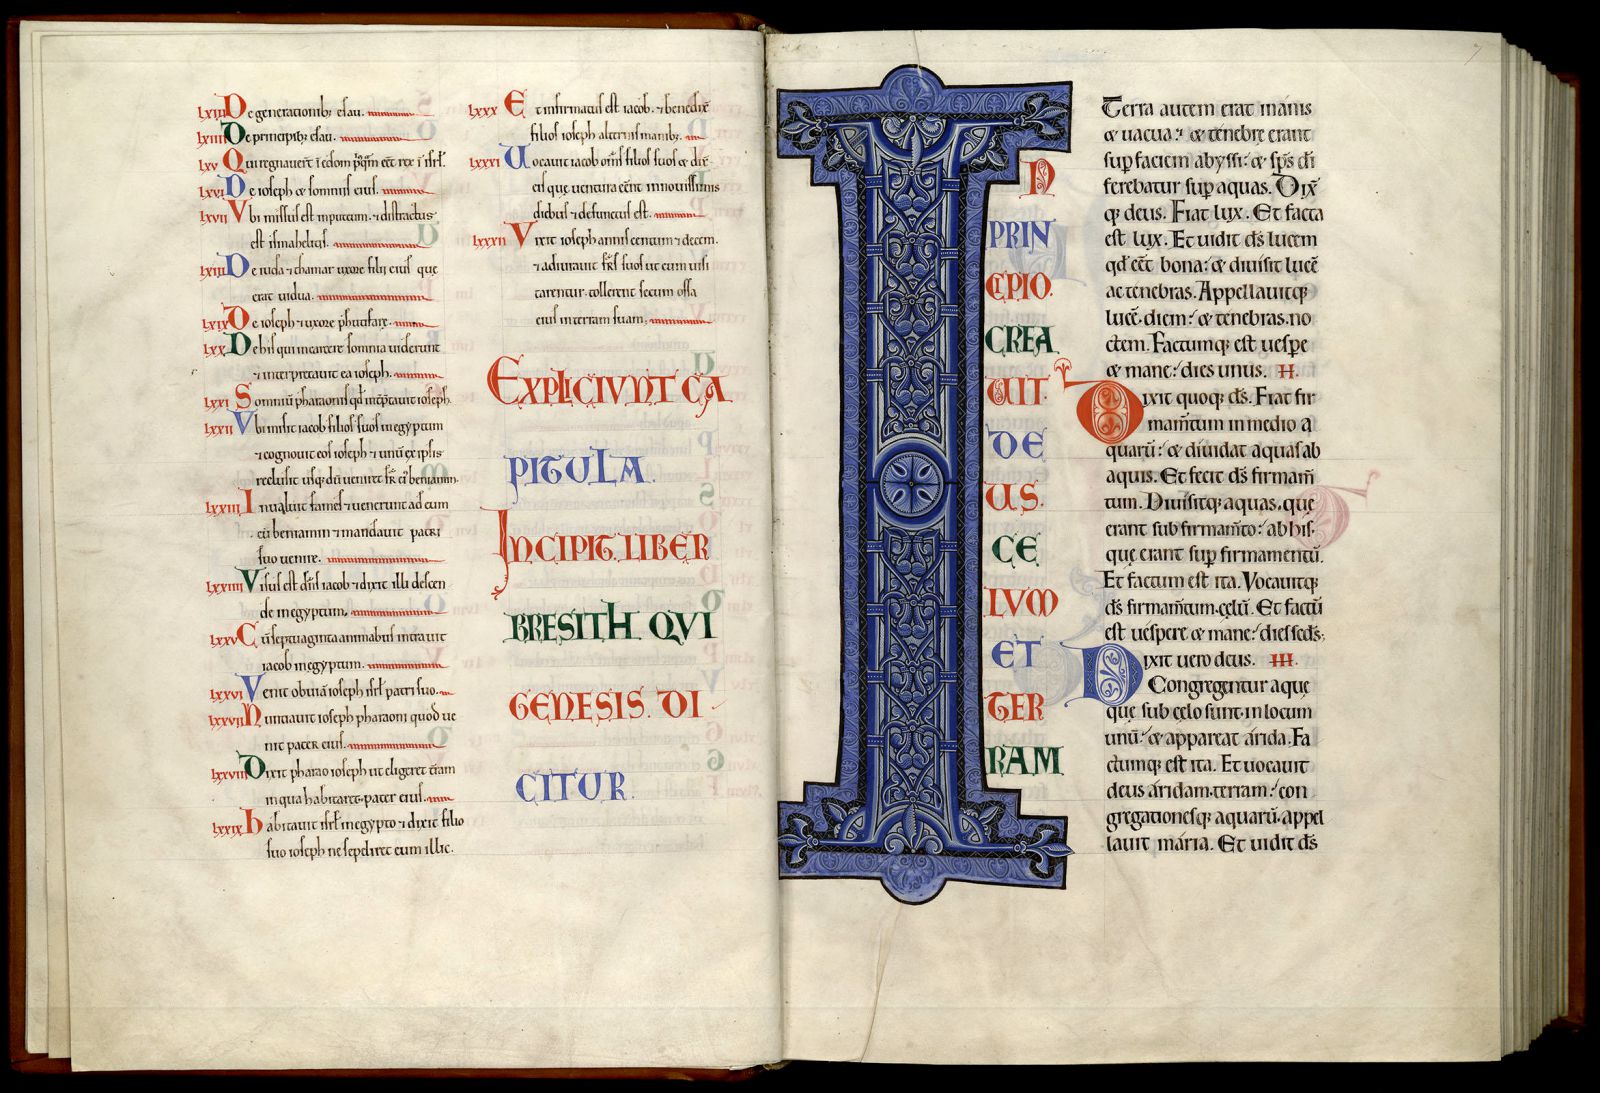 LXIII De generationib; esau.
LXIIII De principib; esau.
LXV Qui regnauer̄t ī edom p̄'q̄m eēt rex ī isrł.
LXVI De ioseph & somniis eius.
LXVII Vbi missus est in puteum. ⁊ distractus
est ismahelitis.
LXIII De iuda ⁊ thamar uxore filii eius que
erat uidua.
LXIX De ioseph ⁊ uxore phutifare.
LXX De his qui in carcere somnia uiderunt
⁊ interpretauit ea ioseph.
LXXI Somniū pharaonis qd̄ int̄p̄tauit ioseph.
LXXII Vbi misit iacob filios suos in egyptum
⁊ cognouit eos ioseph ⁊ unū ex ipsis
reclusit usq; dū ueniret fr̄ eī beniamin.
LXXIII Inualuit fames ⁊ uenerunt ad eum
cū beniamin ⁊ mandauit patri
suo uenire.
LXXIIII Visus est dn̄s iacob ⁊ dixit illi descen
de in egyptum.
LXXV Cū septuaginta animabus intrauit
iacob in egyptum.
LXXVI Venit obuiā ioseph isrł patri suo.
LXXVII Nuntiauit ioseph pharaoni quod ue
nit pater eius.
LXXVIII Dixit pharao ioseph ut eligeret tr̄am
in qua habitaret pater eius.
LXXIX Habitauit isrł in egypto ⁊ dixit filio
suo ioseph ne sepeliret eum illic.
LXXX Et infirmatus est iacob. ⁊ benedix̄
filios ioseph alternis manib;.
LXXXI Uocauit iacob om̄s filios suos & dix̄
eis que uentura eēnt in nouissimis
diebus ⁊ defunctus est.
LXXXII Vixit ioseph annis centum ⁊ decem.
⁊ adiurauit fr̄s suos ut cum uisi
tarentur. tollerent secum ossa
eius in terram suam.
EXPLICIVNT CA
PITULA.
INCIPIT LIBER
BRESITH QVI
GENESIS DI
CITUR.
IN
PRIN
CIPIO.
CREA
UIT.
DE
US.
CE
LUM
ET
TER
RAM
7
Terra autem erat inanis
& uacua: & tenebre erant
sup̄ faciem abyssi: & sp̄s dī
ferebatur sup̄ aquas. Dix̄
q; deus. Fiat lux. Et facta
est lux. Et uidit ds̄ lucem
qd̄ eēt bona: & diuisit lucē
ac tenebras. Appellauitq;
lucē. diem: & tenebras. no
ctem. Factumq; est uesp̄e
& mane: dies unus. II.
Dixit quoq; ds̄. Fiat fir
mam̄tum in medio a
quarū: & diuidat aquas ab
aquis. Et fecit ds̄ firmam̄
tum. Diuisitq; aquas. que
erant sub firmam̄to: ab his.
quę erant sup̄ firmamentū.
Et factum est ita. Vocauitq;
ds̄ firmam̄tum. cęlū. Et factū
est uespere & mane: dies scds̄.
Dixit uero deus. III.
Congregentur aque
que sub cęlo sunt. in locum
unū: & appareat árida. Fa
ctumq; est ita. Et uocauit
deus áridam. terram: con
gregationesq; aquarū. appel
lauit mária. Et uidit ds̄